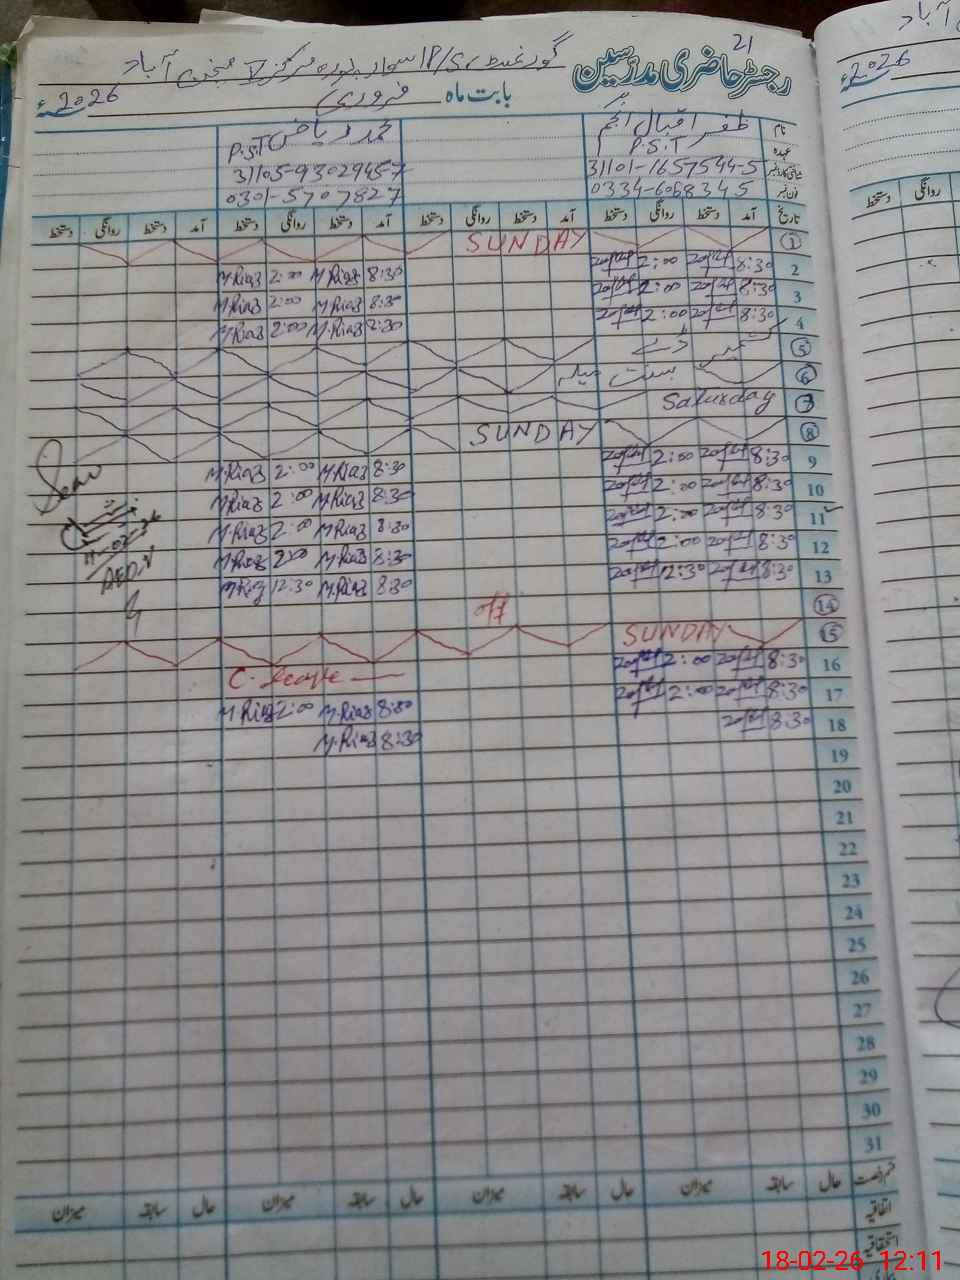 21
رجسٹر حاضری مدرسین
گورنمنٹ P/S سوار پورہ مرکز V منچن آباد
بابت ماہ فروری 2026ء
نام ظفر اقبال انجم محمد ریاض
عہدہ P.S.T P.S.T
شناختی کارڈ نمبر 31101-1657544-5 31105-9302945-7
فون نمبر 0334-6068345 0301-5707827
تاریخ آمد دستخط روانگی دستخط آمد دستخط روانگی دستخط آمد دستخط روانگی دستخط آمد دستخط روانگی دستخط
1 SUNDAY
2 8:30 2:00 8:30 M.Riaz 2:00 M.Riaz
3 8:30 2:00 8:30 M.Riaz 2:00 M.Riaz
4 8:30 2:00 8:30 M.Riaz 2:00 M.Riaz
5 کشمیر ڈے
6 بسنت میلہ
7 Saturday
8 SUNDAY
9 8:30 2:00 8:30 M.Riaz 2:00 M.Riaz
10 8:30 2:00 8:30 M.Riaz 2:00 M.Riaz
11 8:30 2:00 8:30 M.Riaz 2:00 M.Riaz
12 8:30 2:00 8:30 M.Riaz 2:00 M.Riaz
13 8:30 12:30 8:30 M.Riaz 12:30 M.Riaz
Seen
14 off
15 SUNDAY
16 8:30 2:00 C. Leave
17 8:30 2:00 8:30 M.Riaz 2:00 M.Riaz
18 8:30 8:30 M.Riaz
19
20
21
22
23
24
25
26
27
28
29
30
31
قسم رخصت حال سابقہ میزان حال سابقہ میزان حال سابقہ میزان حال سابقہ میزان
اتفاقیہ
استحقاقیہ
آباد
2026ء
روانگی دستخط
18-02-26 12:11